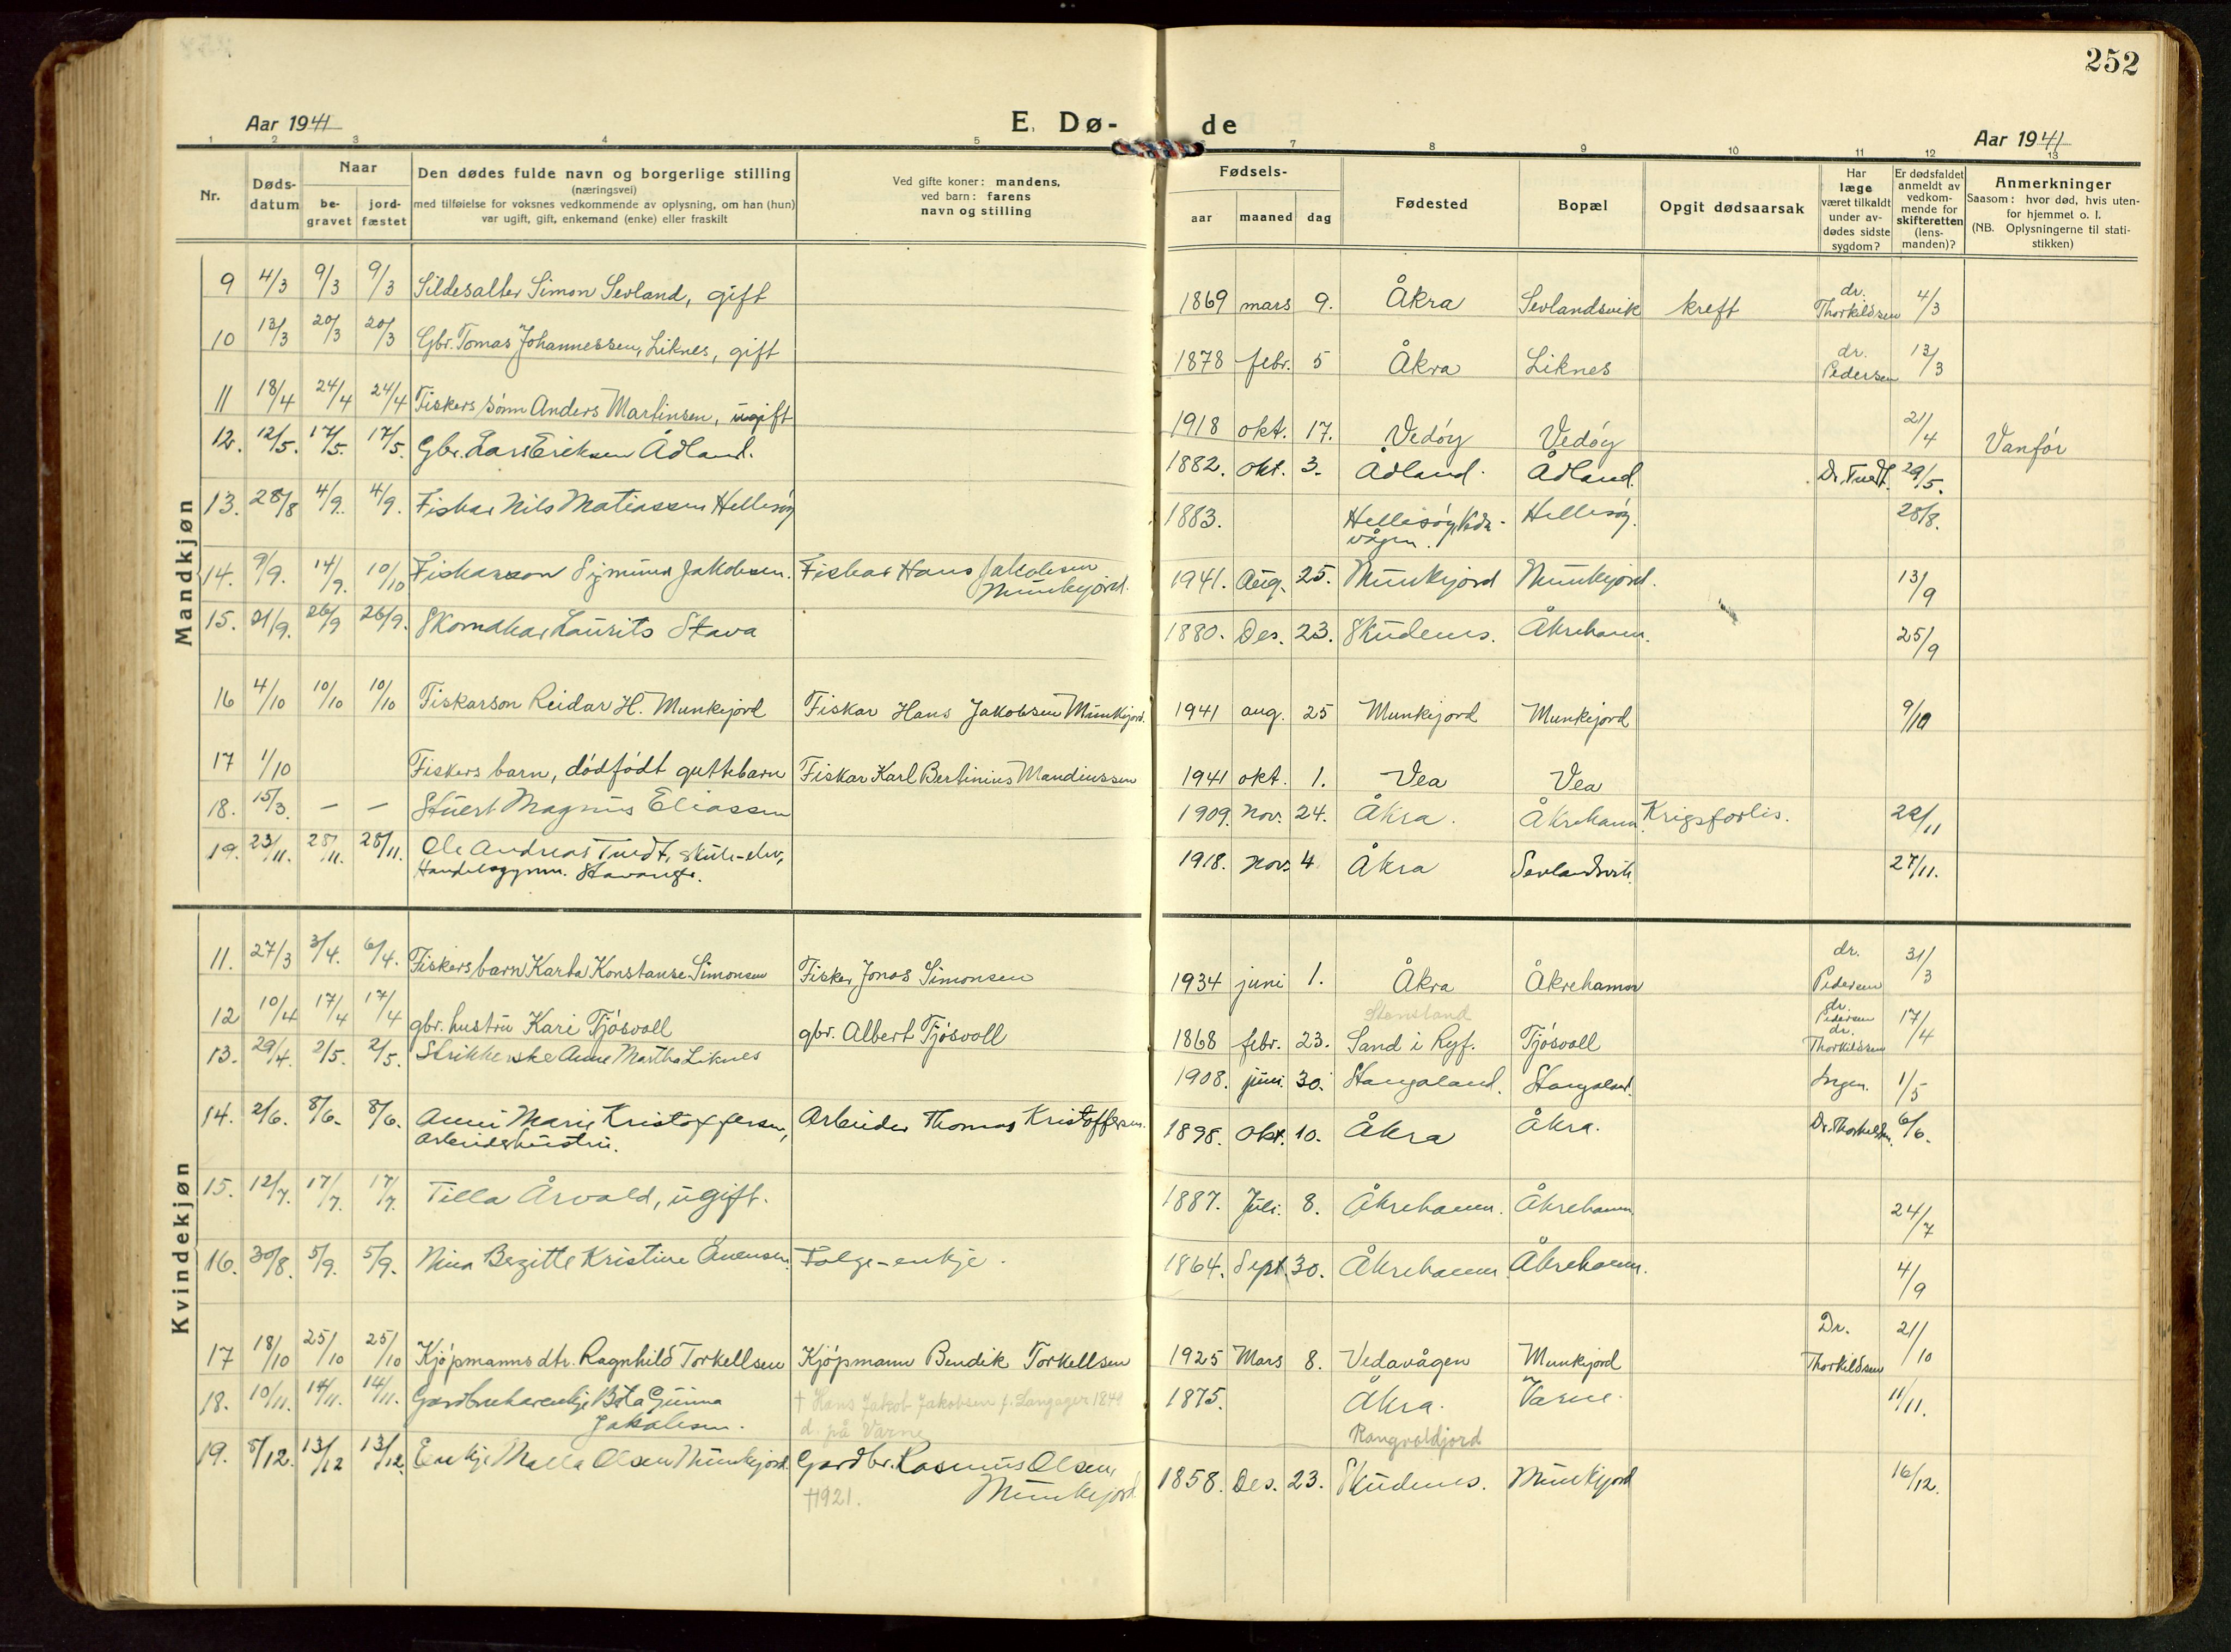 252
Aar 1941
E. Dø-
de
Aar 1941
1 2 3 4 5 7 8 9 10 11 12 13
Nr.
Døds-
datum
Naar
be-
gravet
jord-
fæstet
Den dødes fulde navn og borgerlige stilling
(næringsvei)
med tilføielse for voksnes vedkommende av oplysning, om han (hun)
var ugift, gift, enkemand (enke) eller fraskilt
Ved gifte koner: mandens,
ved barn: farens
navn og stilling
Fødsels-
aar
maaned
dag
Fødested
Bopæl
Opgit dødsaarsak
Har
læge
været tilkaldt
under av-
dødes sidste
sygdom?
Er dødsfaldet
anmeldt av
vedkom-
mende for
skifteretten
(lens-
manden)?
Anmerkninger
Saasom: hvor død, hvis uten-
for hjemmet o. l.
(NB. Oplysningerne til stati-
stikken)
Mandkjøn
9 4/3 9/3 9/3 Sildesalter Simon Sevland, gift 1869 mars 9. Åkra Sevlandsvik kreft dr. Thorkildsen 4/3
10 13/3 20/3 20/3 Gbr. Tomas Johannessen, Liknes, gift 1878 febr. 5 Åkra Liknes dr. Pedersen 13/3
11 18/4 24/4 24/4 Fiskers sønn Anders Martinsen, ugift 1918 okt. 17. Vedøy Vedøy 21/4 Vanfør
12. 12/5. 17/5. 17/5. Gbr. Lars Eriksen Ådland. 1882. okt. 3. Ådland. Ådland. Dr. Tvedt. 29/5.
13. 28/8 4/9. 4/9. Fiskar Nils Matiassen Hellisøy 1883. Hellisøy, Veda-
vågen. Hellisøy. 28/8.
14. 9/9. 14/9. 10/10 Fiskarson Sigmund Jakobsen. Fiskar Hans Jakobsen
Munkejord. 1941. Aug. 25. Munkejord Munkejord. 13/9
15. 21/9. 26/9 26/9. Skomakar Laurits Stava 1880. Des. 23. Skudenes. Åkrehamn. 25/9
16 4/10 10/10 10/10 Fiskarson Reidar H. Munkejord Fiskar Hans Jakobsen Munkejord. 1941 aug. 25 Munkejord Munkejord 9/10
17 1/10 Fiskers barn, dødfødt guttebarn Fiskar Karl Bertinius Mandiussen 1941 okt. 1. Vea Vea
18. 15/3. — — Stuert Magnus Eliassen 1909. Nov. 24. Åkra. Åkrehamn. Krigsforlis. 29/11
19. 23/11. 28/11. 28/11. Ole Andreas Tvedt, skule-elev,
Handelsgymn. Stavanger. 1918. Nov. 4 Åkra Sevlandsvik. 27/11.
Kvindekjøn
11. 27/3 3/4. 6/4. Fiskers barn Karla Konstanse Simonsen Fisker Jonas Simonsen 1934 juni 1. Åkra Åkrehamn dr. Pedersen 31/3
12 10/4 17/4 17/4 gbr. hustru Kari Tjøsvoll gbr. Albert Tjøsvoll 1868 febr. 23. Sand i Ryf. Tjøsvoll dr. Pedersen dr. Thorkildsen 17/4
13. 29/4. 2/5. 2/5. Strikkerske Anne Martha Liknes 1908. juni 30. Stangaland. Stangaland. Ingen. 1/5
14. 2/6. 8/6. 8/6. Anni Marie Kristoffersen,
Arbeiderhustru. Arbeider Thomas Kristoffersen. 1898. Okt. 10. Åkra Åkra. Dr. Thorkildsen. 6/6.
15. 12/7. 17/7. 17/7. Tilla Årvald, ugift. 1887. Juli. 8. Åkrehamn. Åkrehamn. 24/7
16. 30/8. 5/9. 5/9. Nina Bergitte Kristine Evensen. Folge-enkje. 1864. Sept. 30. Åkrehamn Åkrehamn. 4/9
17 18/10 25/10 25/10 Kjøpmanns dtr. Ragnhild Torkellsen Kjøpmann Bendik Torkellsen 1925 Mars 8. Vedavågen Munkejord Dr. Thorkildsen 21/10
18. 10/11. 14/11. 14/11. Gardbrukarenkje Gunna
Jakobsen. † Hans Jakob Jakobsen f. Langåger 1849
d. på Varne 1875. Åkra. Varne. 11/11.
19. 8/12. 13/12 13/12. Enkje Malla Olsen Munkejord. Gardbr. Rasmus Olsen,
Munkejord.
†1921. Rangvaldjord 1858. Des. 23. Skudenes. Munkejord 16/12.